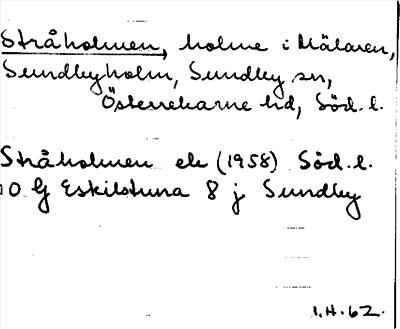 Stråholmen, holme i Mälaren,
Sundbyholm, Sundby sn,
Österrekarne hd, Söd. l.
Stråholmen ek (1958) Söd. l.
10 G Eskilstuna 8 j Sundby
I.H. 62.